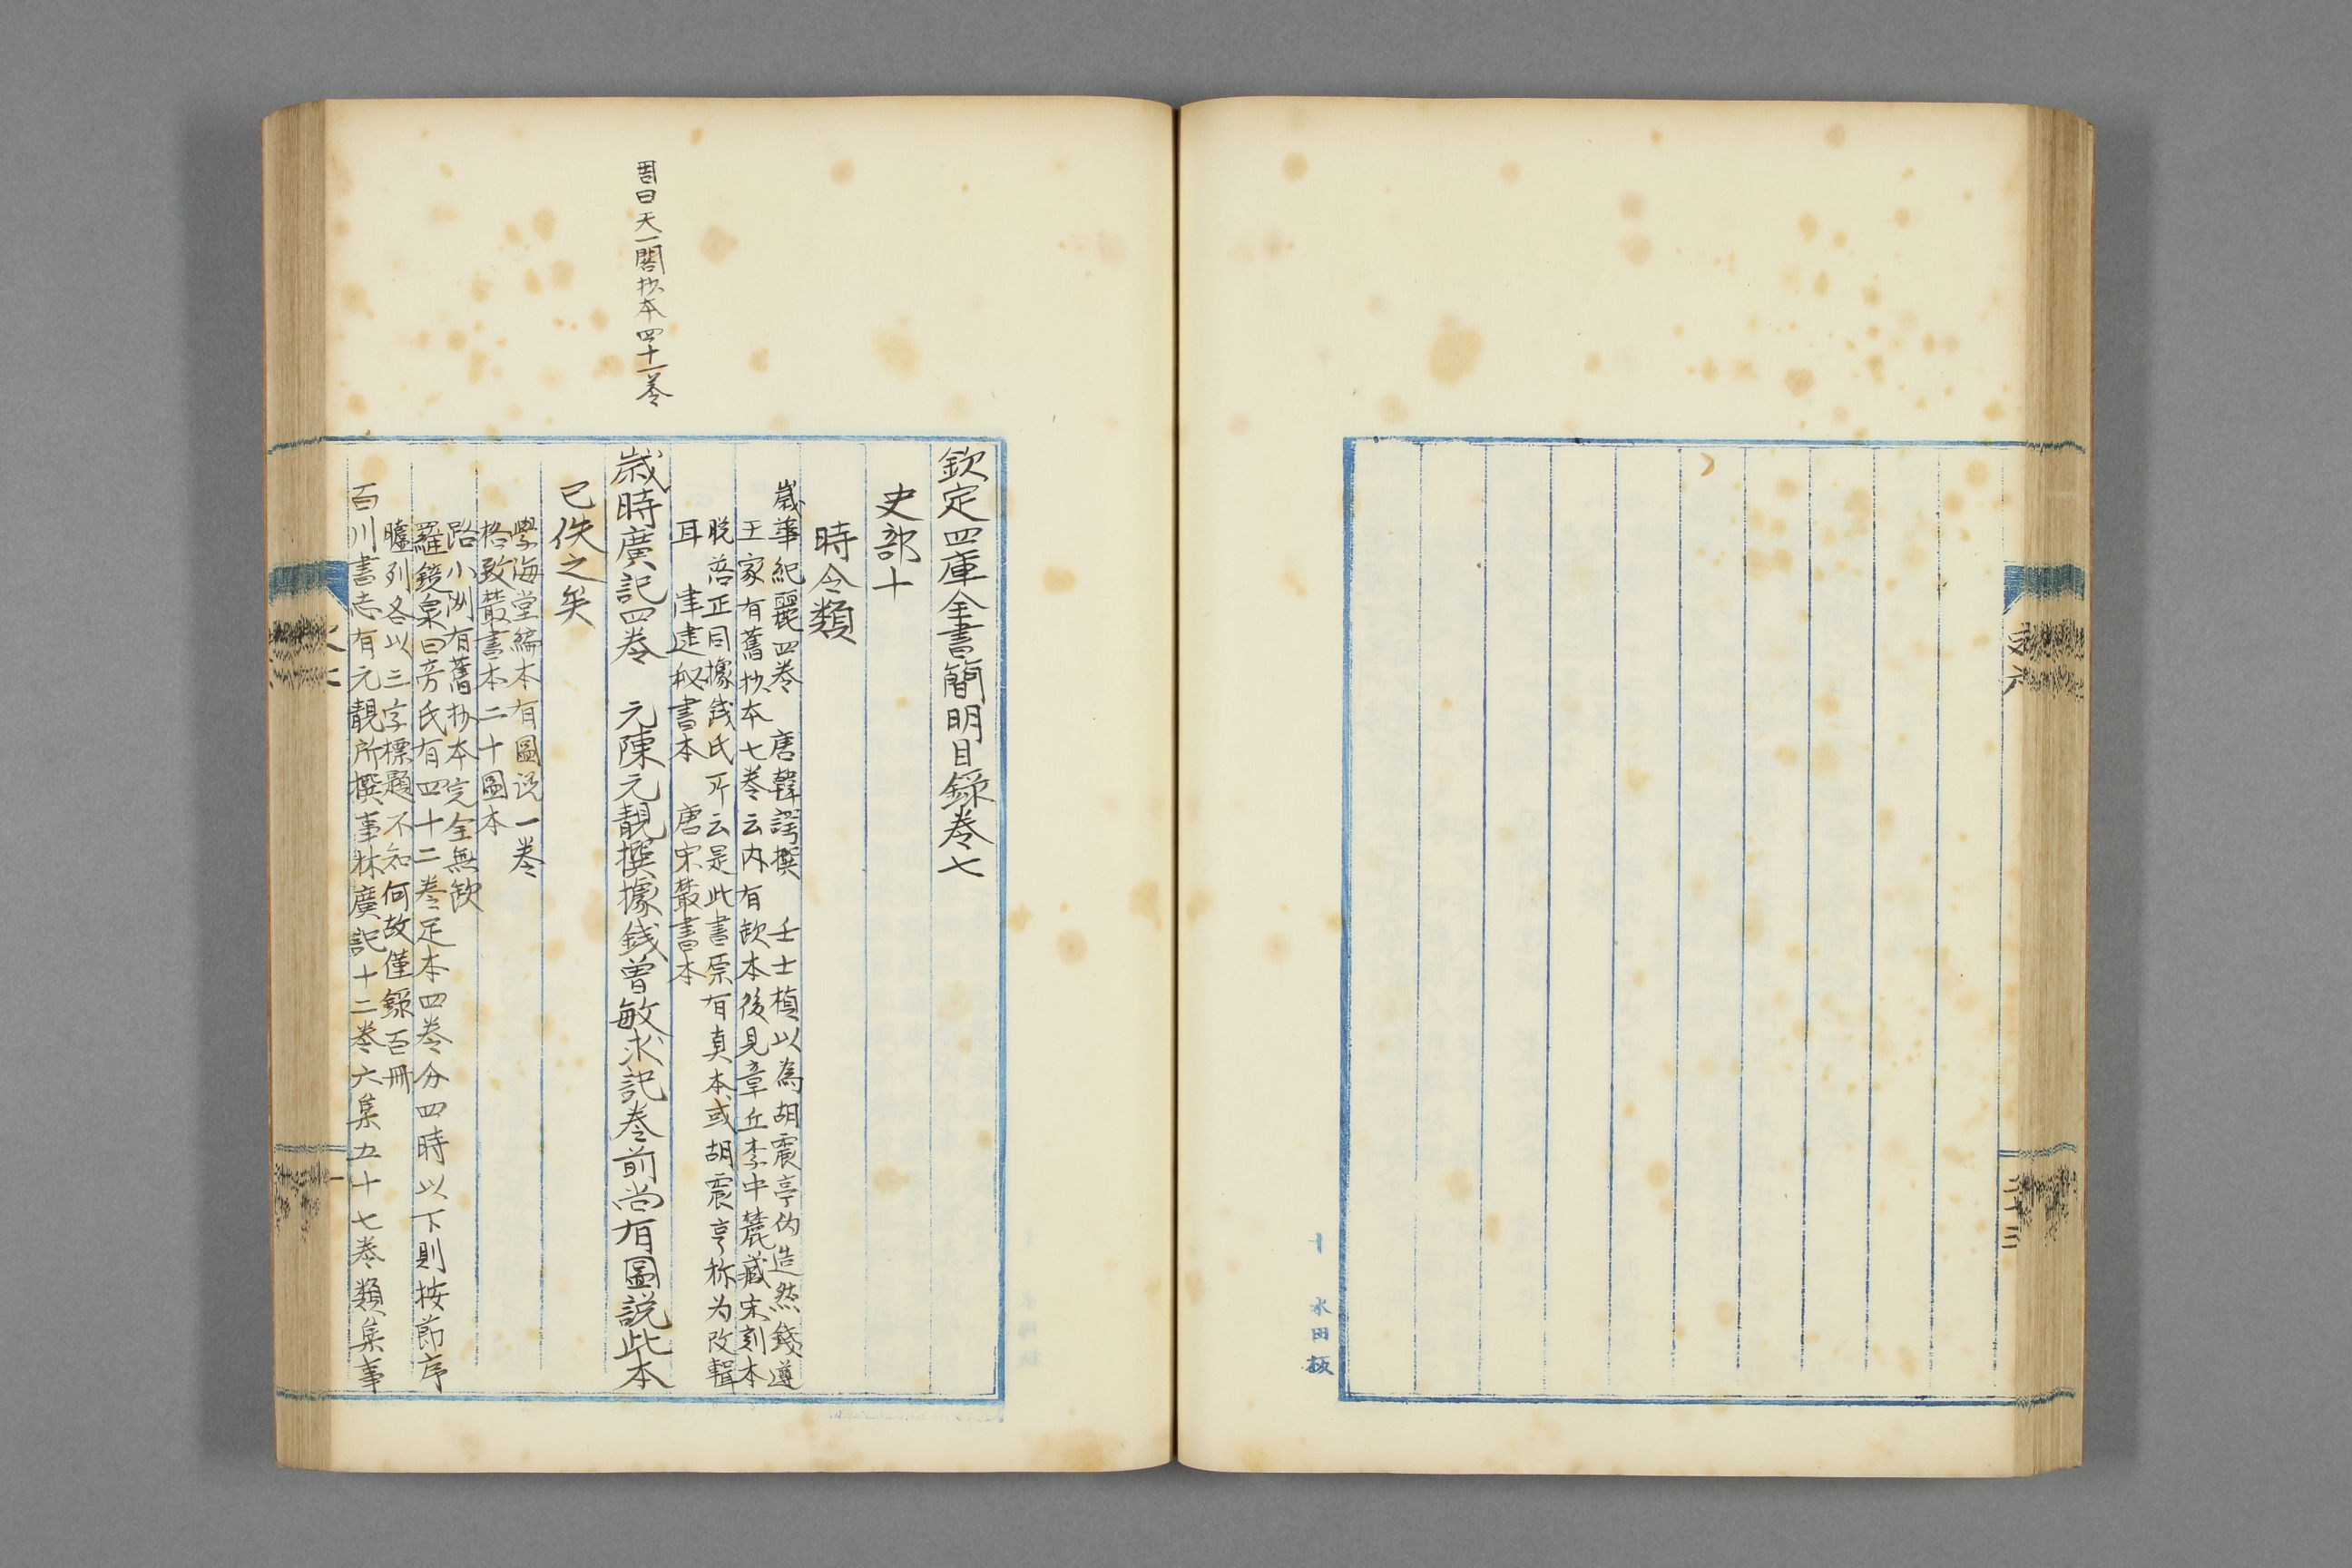 十 水田板
欽定四庫全書簡明目錄卷七
史部十
時令類
歲華紀麗四卷 唐韓諤撰 王士楨以為胡震亭伪造然錢遵
王家有舊抄本七卷云内有欽本後見章丘李中麓藏宋刻本
脱落正同據錢氏所云是此書原有真本或胡震亨称为改輯
耳 津逮秘書本 唐宋叢書本
周曰天一閣抄本四十一卷
歲時廣記四卷 元陳元靚撰據錢曾敏求記卷前尚有圖説此本
已佚之矣
學海堂編本有圖说一卷
格致叢書本二十圖本
路小洲有舊抄本完全無欽
羅鏡泉曰旁氏有四十二卷足本四卷分四時以下則按節序
臚列各以三字標題不知何故僅錄百冊
百川書志有元靚所撰事林廣記十二卷六集五十七卷類集事